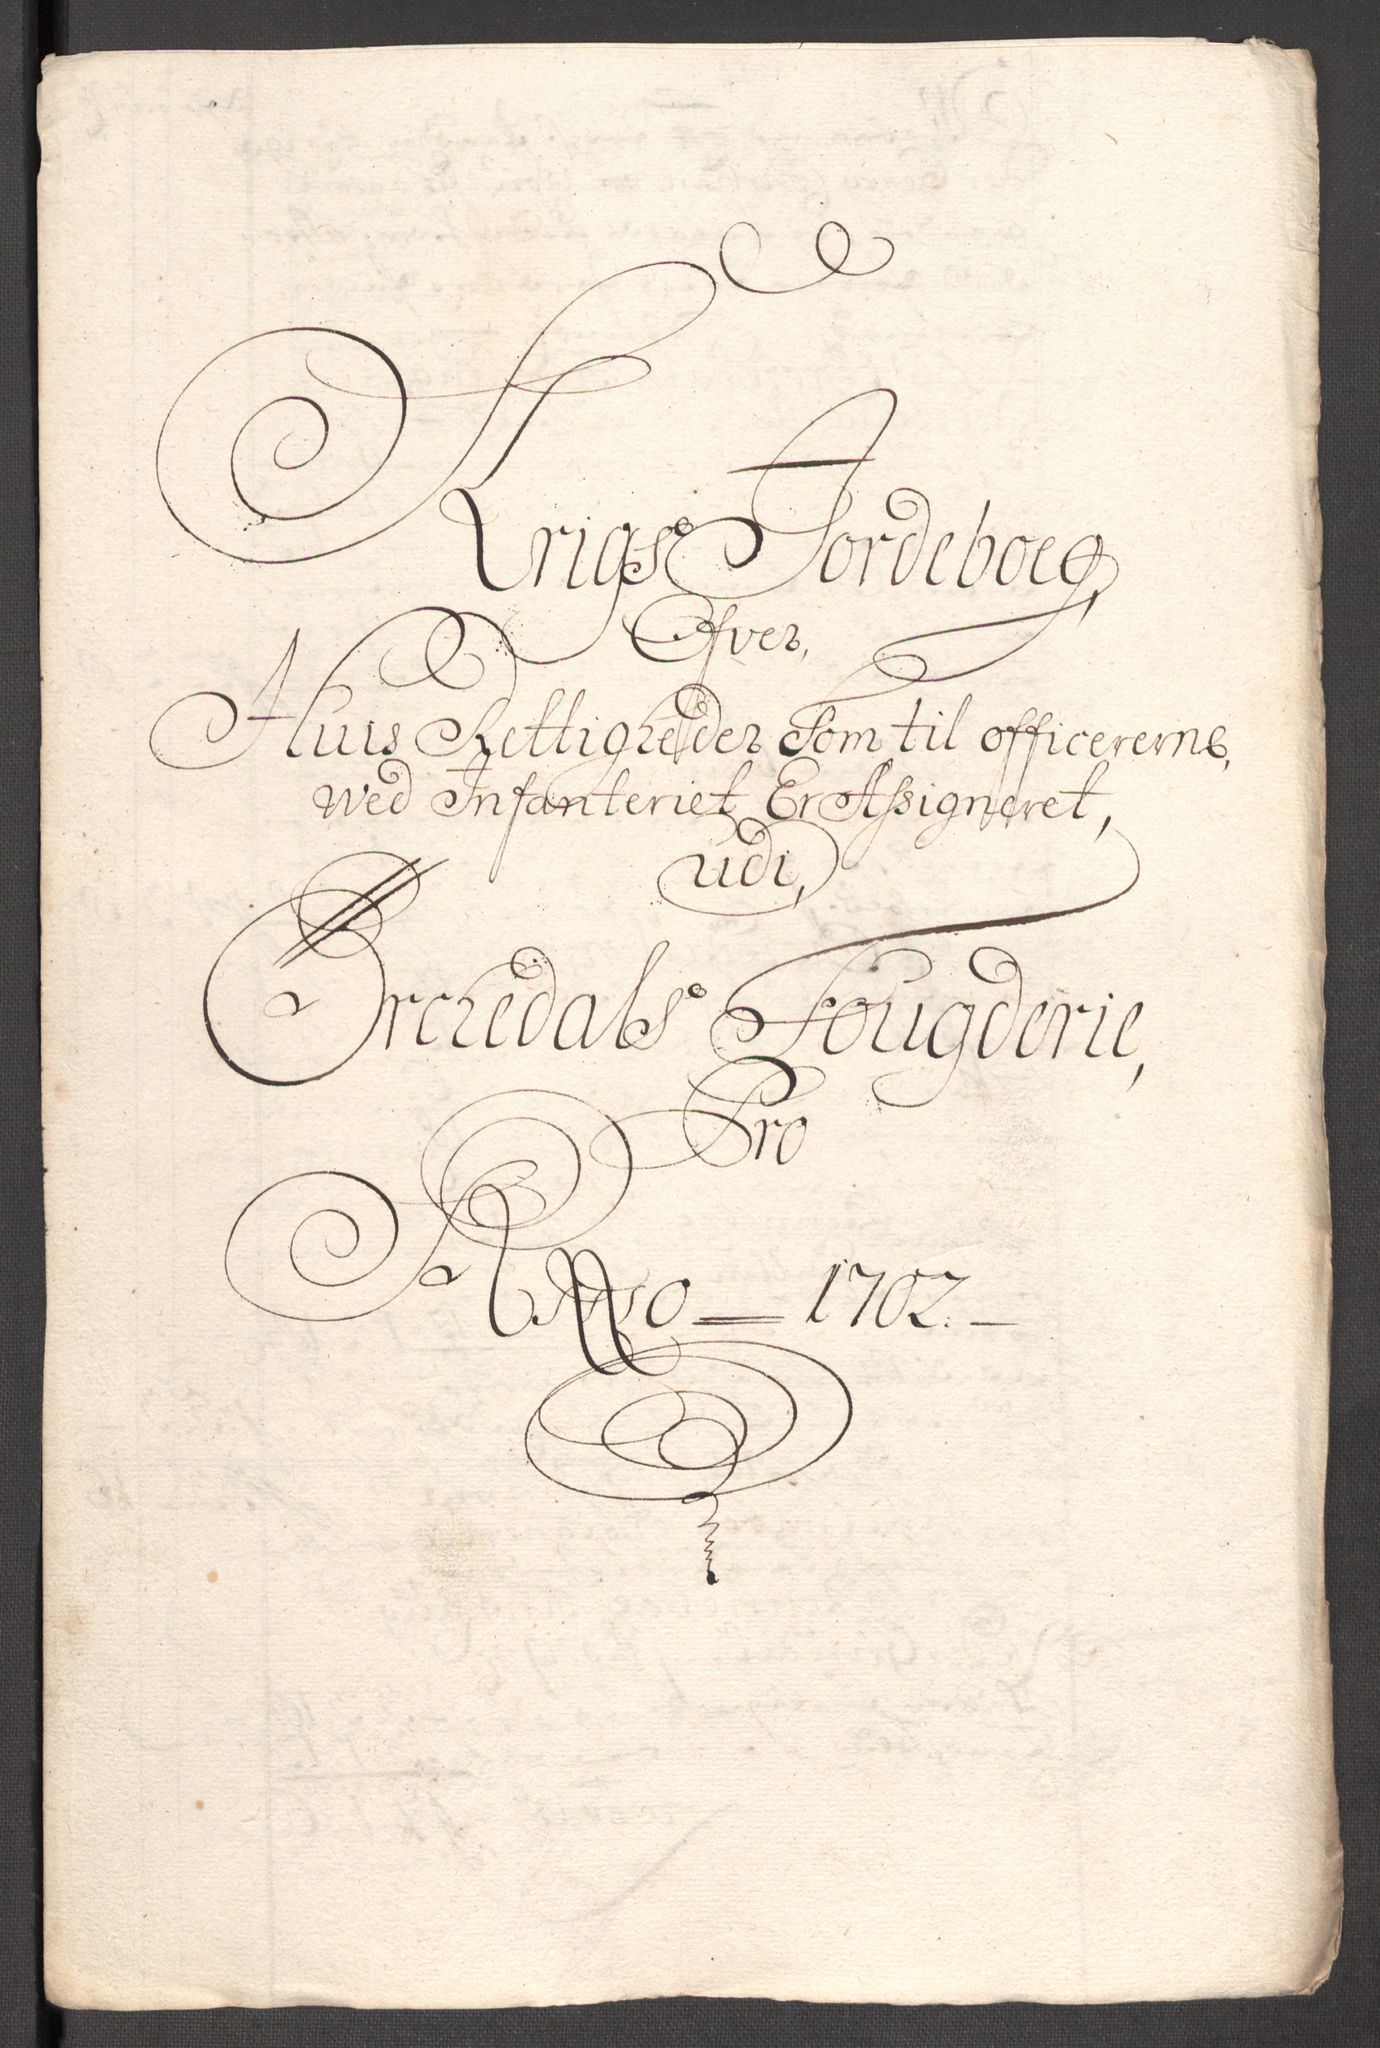 Krigs Jordeboeg,
Ofver,
Huis Rettigheder som til officererne,
wed Infanteriet Er Assigneret,
udi,
Orchedals Fougderie,
Pro
Anno 1702.